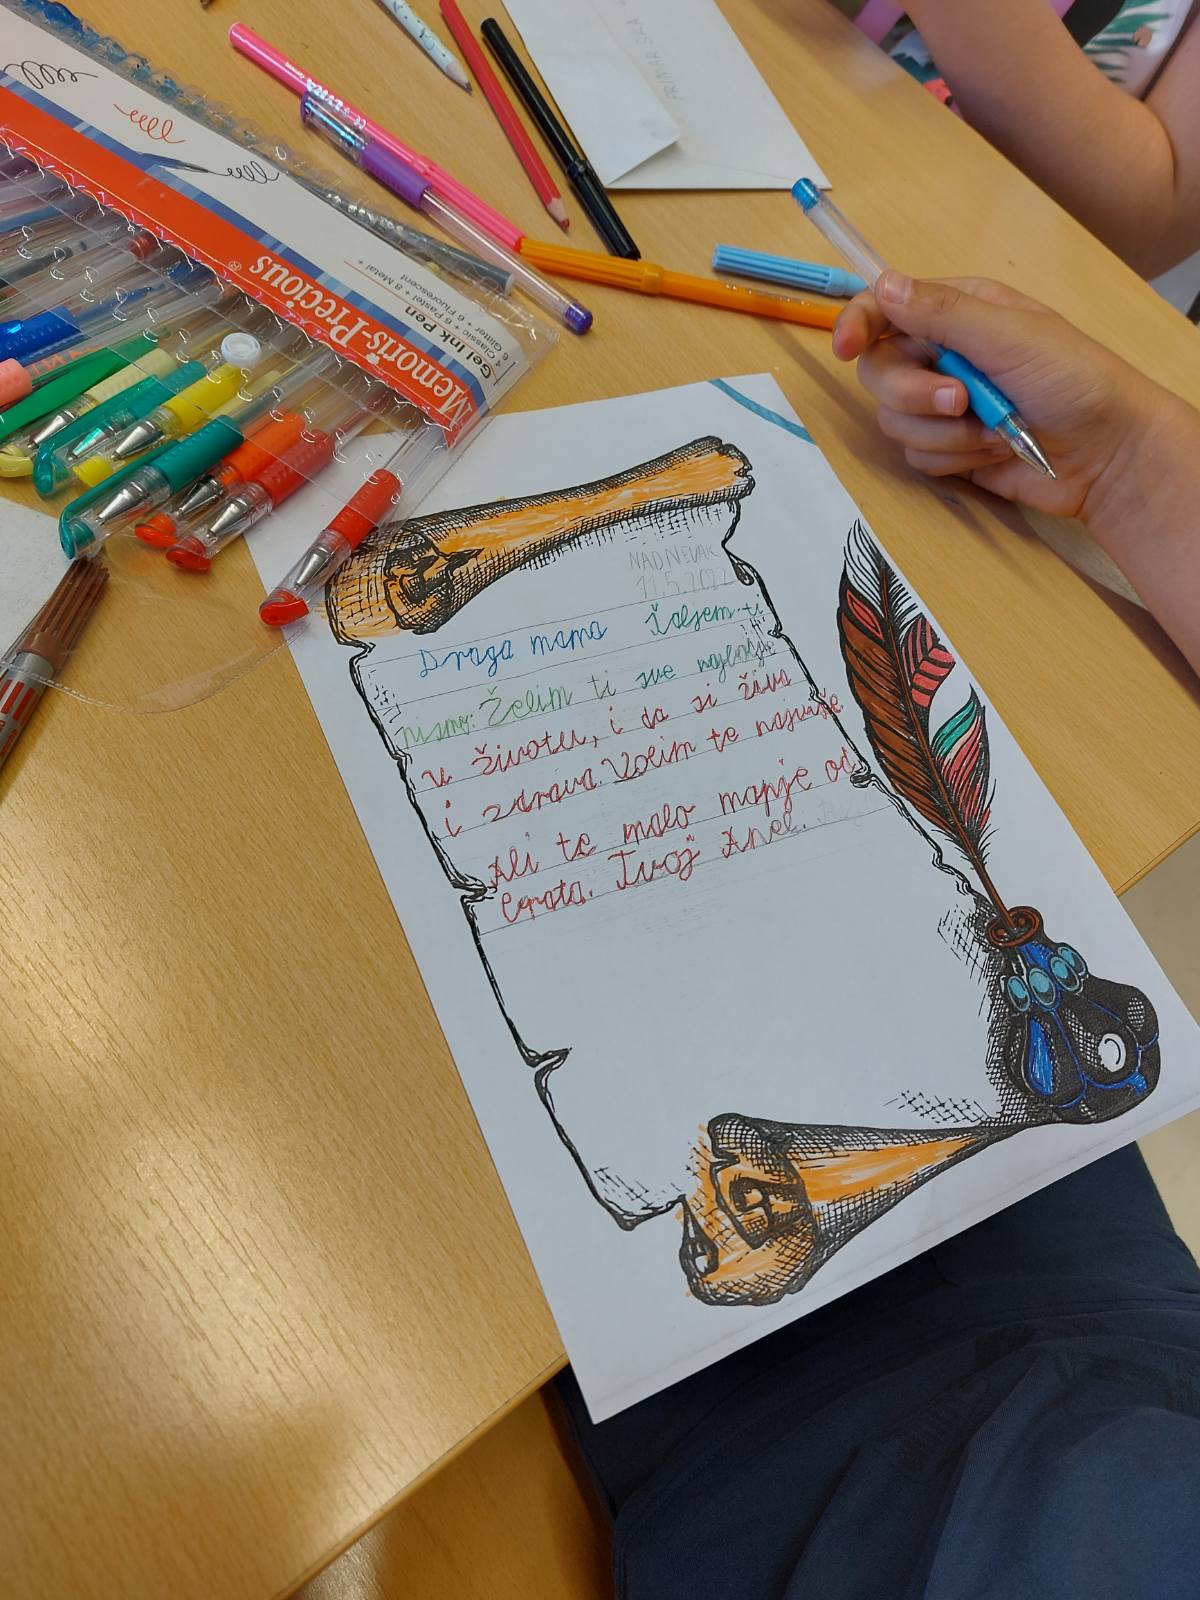 Memoris-Precious®
Gel Ink Pen
6 Classic + 6 Pastel + 8 Metal +
6 Glitter + 6 Fluorescent
NADNEVAK
11.5.2022
Draga mama Šaljem ti
pismo: Želim ti sve najbolje
u životu, i da si živa
i zdrava. Volim te najviše
Ali te malo manje od
brata. Tvoj Anel.